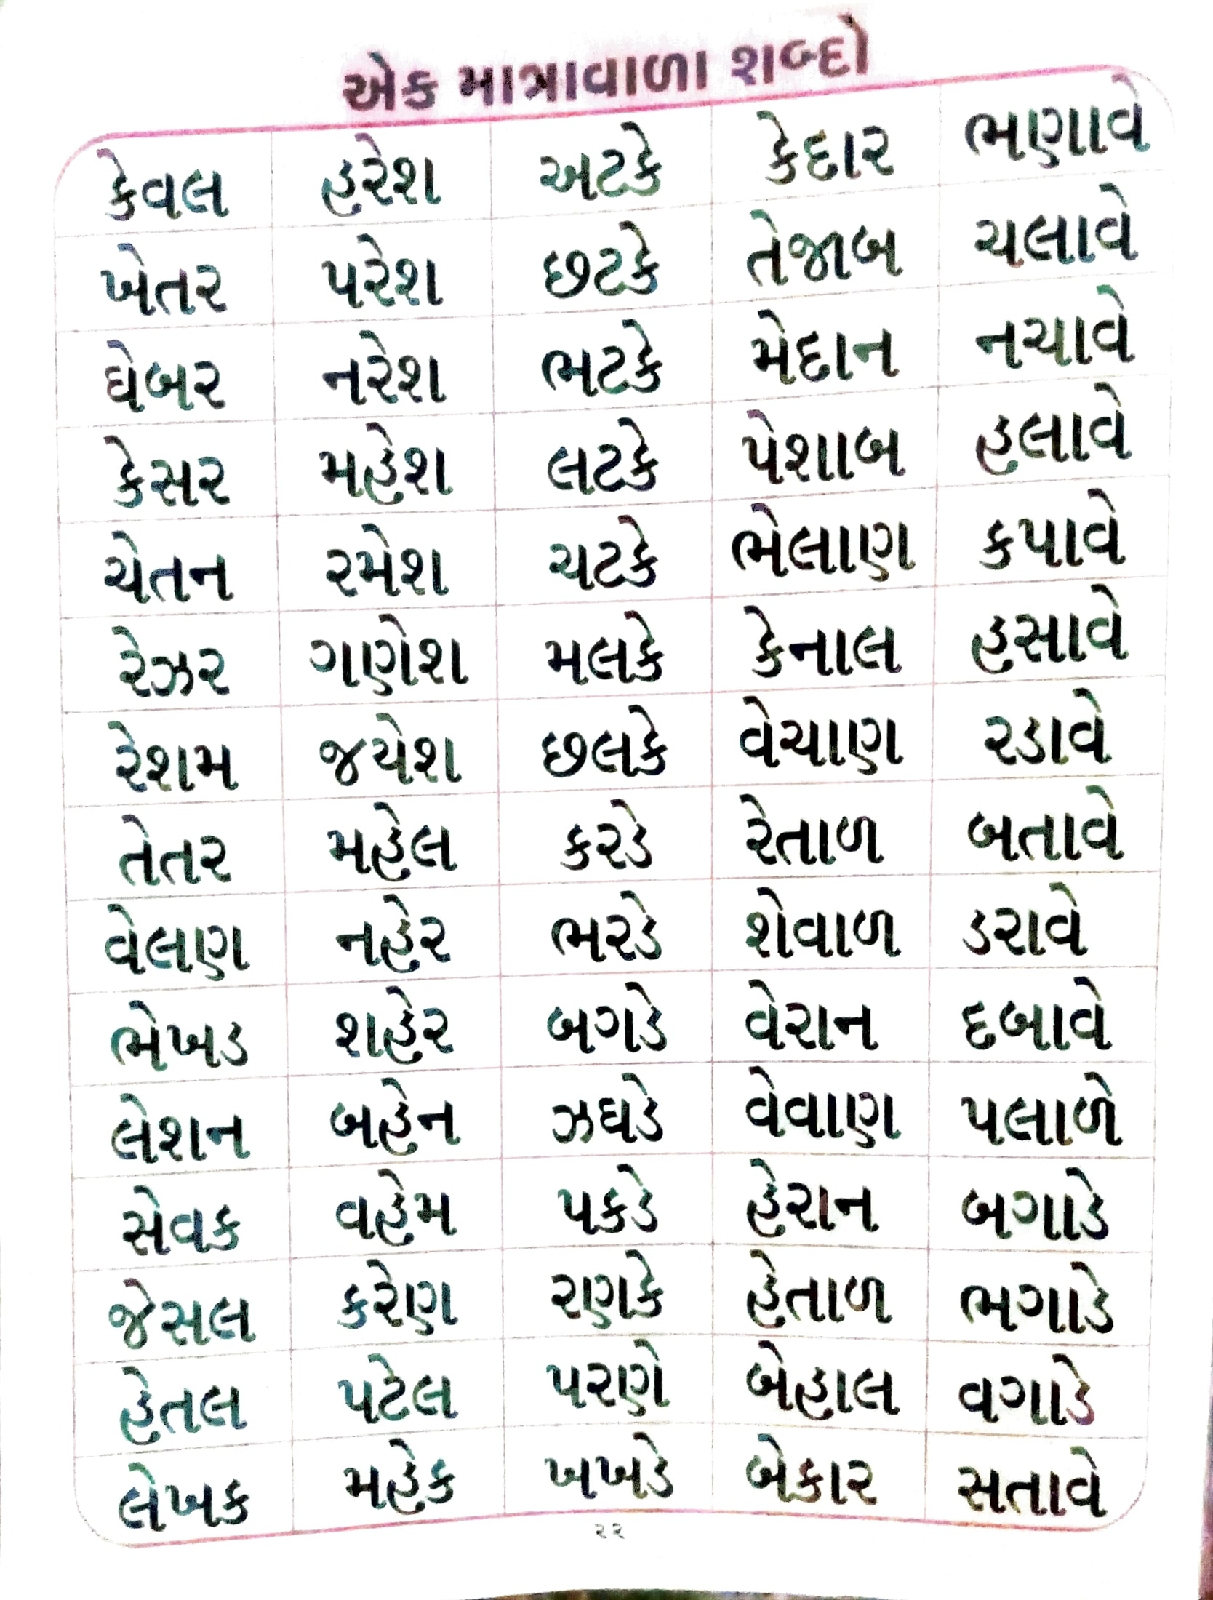 એક માત્રાવાળા શબ્દો
કેવલ હરેશ અટકે કેદાર ભણાવે
ખેતર પરેશ છટકે તેજાબ ચલાવે
ઘેબર નરેશ ભટકે મેદાન નચાવે
કેસર મહેશ લટકે પેશાબ હલાવે
ચેતન રમેશ ચટકે ભેલાણ કપાવે
રેઝર ગણેશ મલકે કેનાલ હસાવે
રેશમ જયેશ છલકે વેચાણ રડાવે
તેતર મહેલ કરડે રેતાળ બતાવે
વેલણ નહેર ભરડે શેવાળ ડરાવે
ભેખડ શહેર બગડે વેરાન દબાવે
લેશન બહેન ઝઘડે વેવાણ પલાળે
સેવક વહેમ પકડે હેરાન બગાડે
જેસલ કરેણ રણકે હેતાળ ભગાડે
હેતલ પટેલ પરણે બેહાલ વગાડે
લેખક મહેક ખખડે બેકાર સતાવે
૨૨